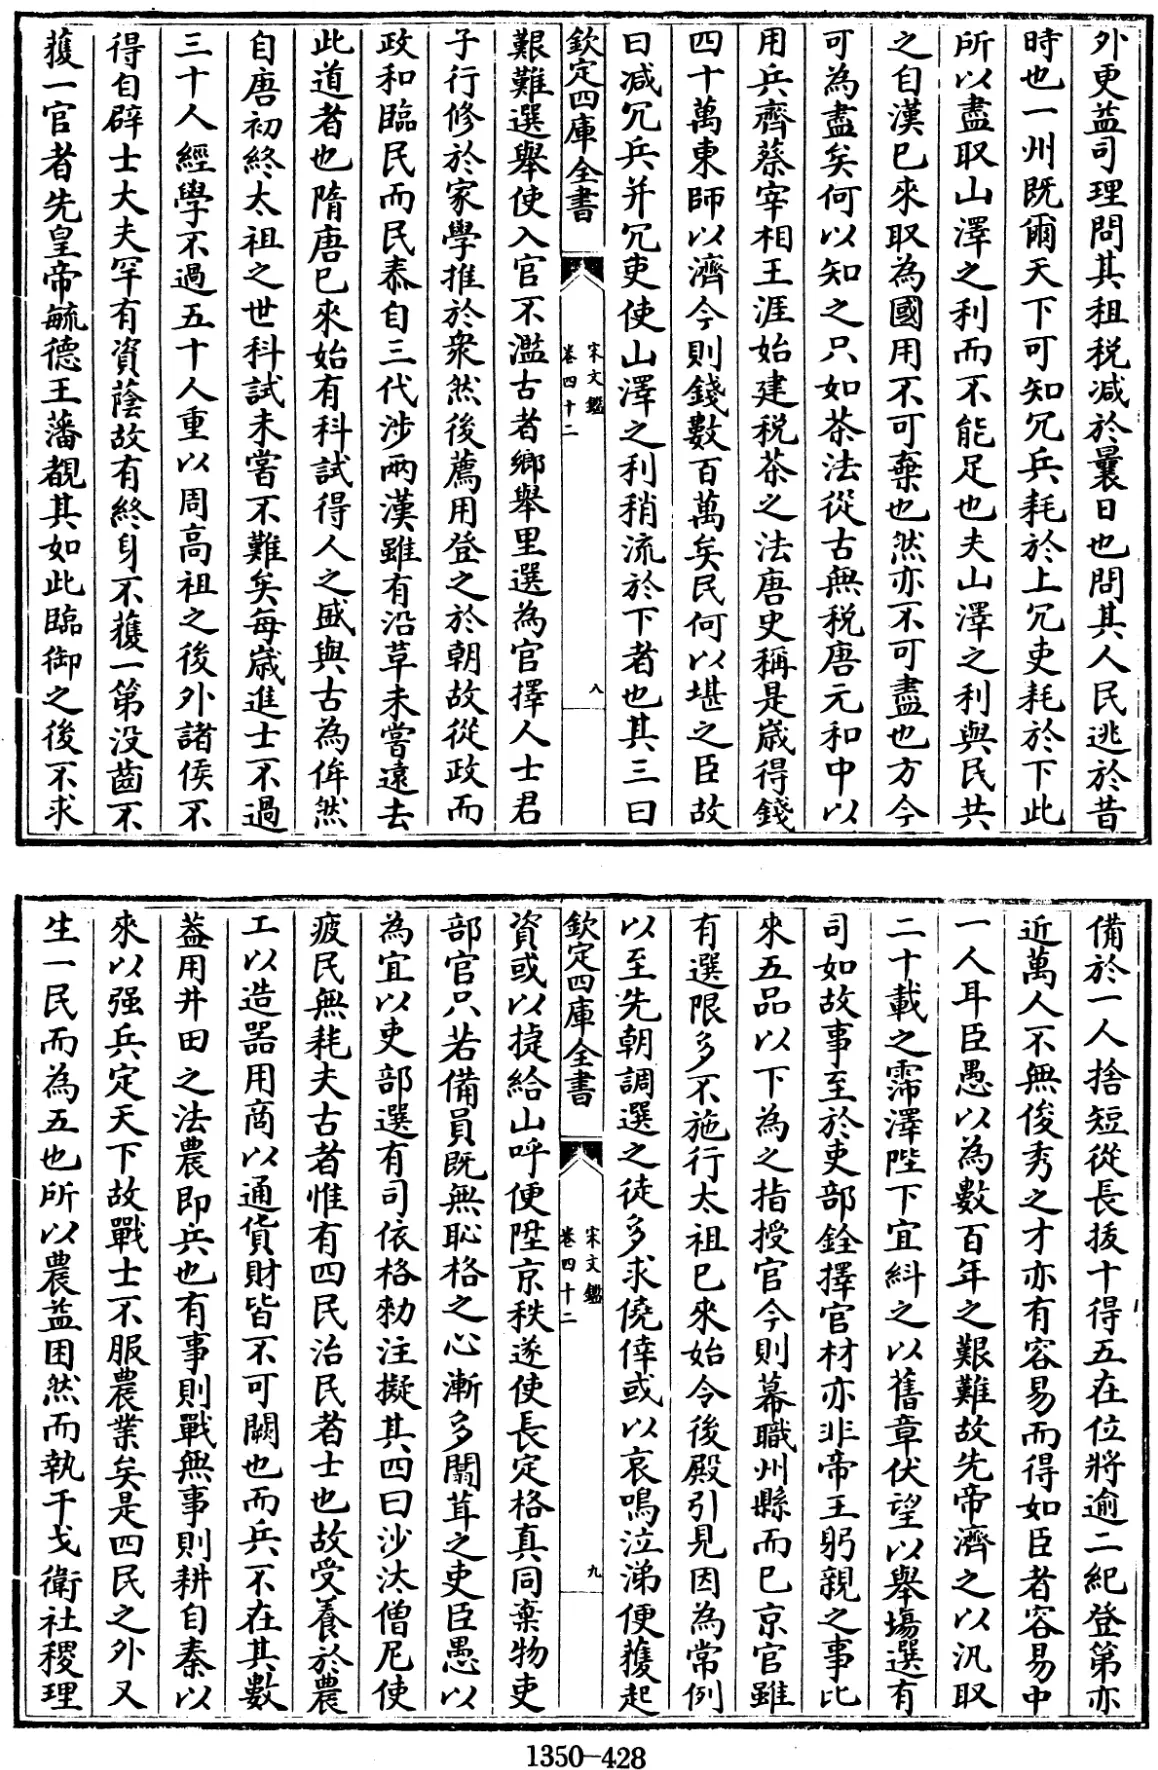 外更益司理問其租税减於曩日也問其人民逃於昔
時也一州既爾天下可知冗兵耗於上冗吏耗於下此
所以盡取山澤之利而不能足也夫山澤之利與民共
之自漢已來取為國用不可棄也然亦不可盡也方今
可為盡矣何以知之只如茶法從古無税唐元和中以
用兵齊蔡宰相王涯始建税茶之法唐史稱是歲得錢
四十萬東師以濟今則錢數百萬矣民何以堪之臣故
曰减冗兵并冗吏使山澤之利稍流於下者也其三曰
欽定四庫全書
宋文鑑
卷四十二
八
艱難選舉使入官不濫古者鄉舉里選為官擇人士君
子行修於家學推於衆然後薦用登之於朝故從政而
政和臨民而民泰自三代涉兩漢雖有沿革未嘗遠去
此道者也隋唐已來始有科試得人之盛與古為侔然
自唐初終太祖之世科試未嘗不難矣每歲進士不過
三十人經學不過五十人重以周高祖之後外諸侯不
得自辟士大夫罕有資蔭故有終身不獲一第没齒不
獲一官者先皇帝毓德王藩覩其如此臨御之後不求
備於一人捨短從長抜十得五在位將逾二紀登第亦
近萬人不無俊秀之才亦有容易而得如臣者容易中
一人耳臣愚以為數百年之艱難故先帝濟之以汎取
二十載之霈澤陛下宜糾之以舊章伏望以舉塲選有
司如故事至於吏部銓擇官材亦非帝王躬親之事比
來五品以下為之指授官今則幕職州縣而已京官雖
有選限多不施行太祖已來始令後殿引見因為常例
以至先朝調選之徒多求僥倖或以哀鳴泣涕便獲起
欽定四庫全書
宋文鑑
卷四十二
九
資或以捷給山呼便陞京秩遂使長定格真同棄物吏
部官只若備員既無恥格之心漸多闒茸之吏臣愚以
為宜以吏部選有司依格勑注擬其四曰沙汰僧尼使
疲民無耗夫古者惟有四民治民者士也故受養於農
工以造器用商以通貨財皆不可闕也而兵不在其數
蓋用井田之法農即兵也有事則戰無事則耕自秦以
來以强兵定天下故戰士不服農業矣是四民之外又
生一民而為五也所以農益困然而執干戈衛社稷理
1350—428